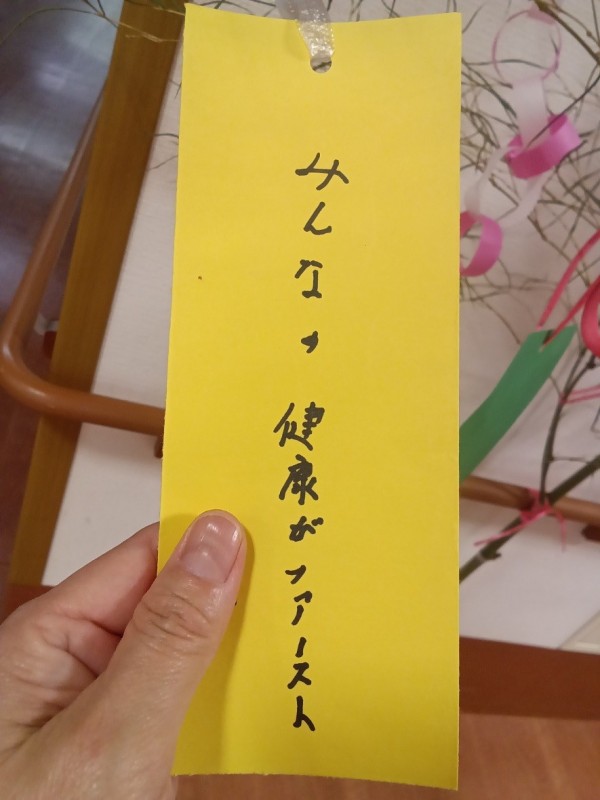 みんな、健康がファースト